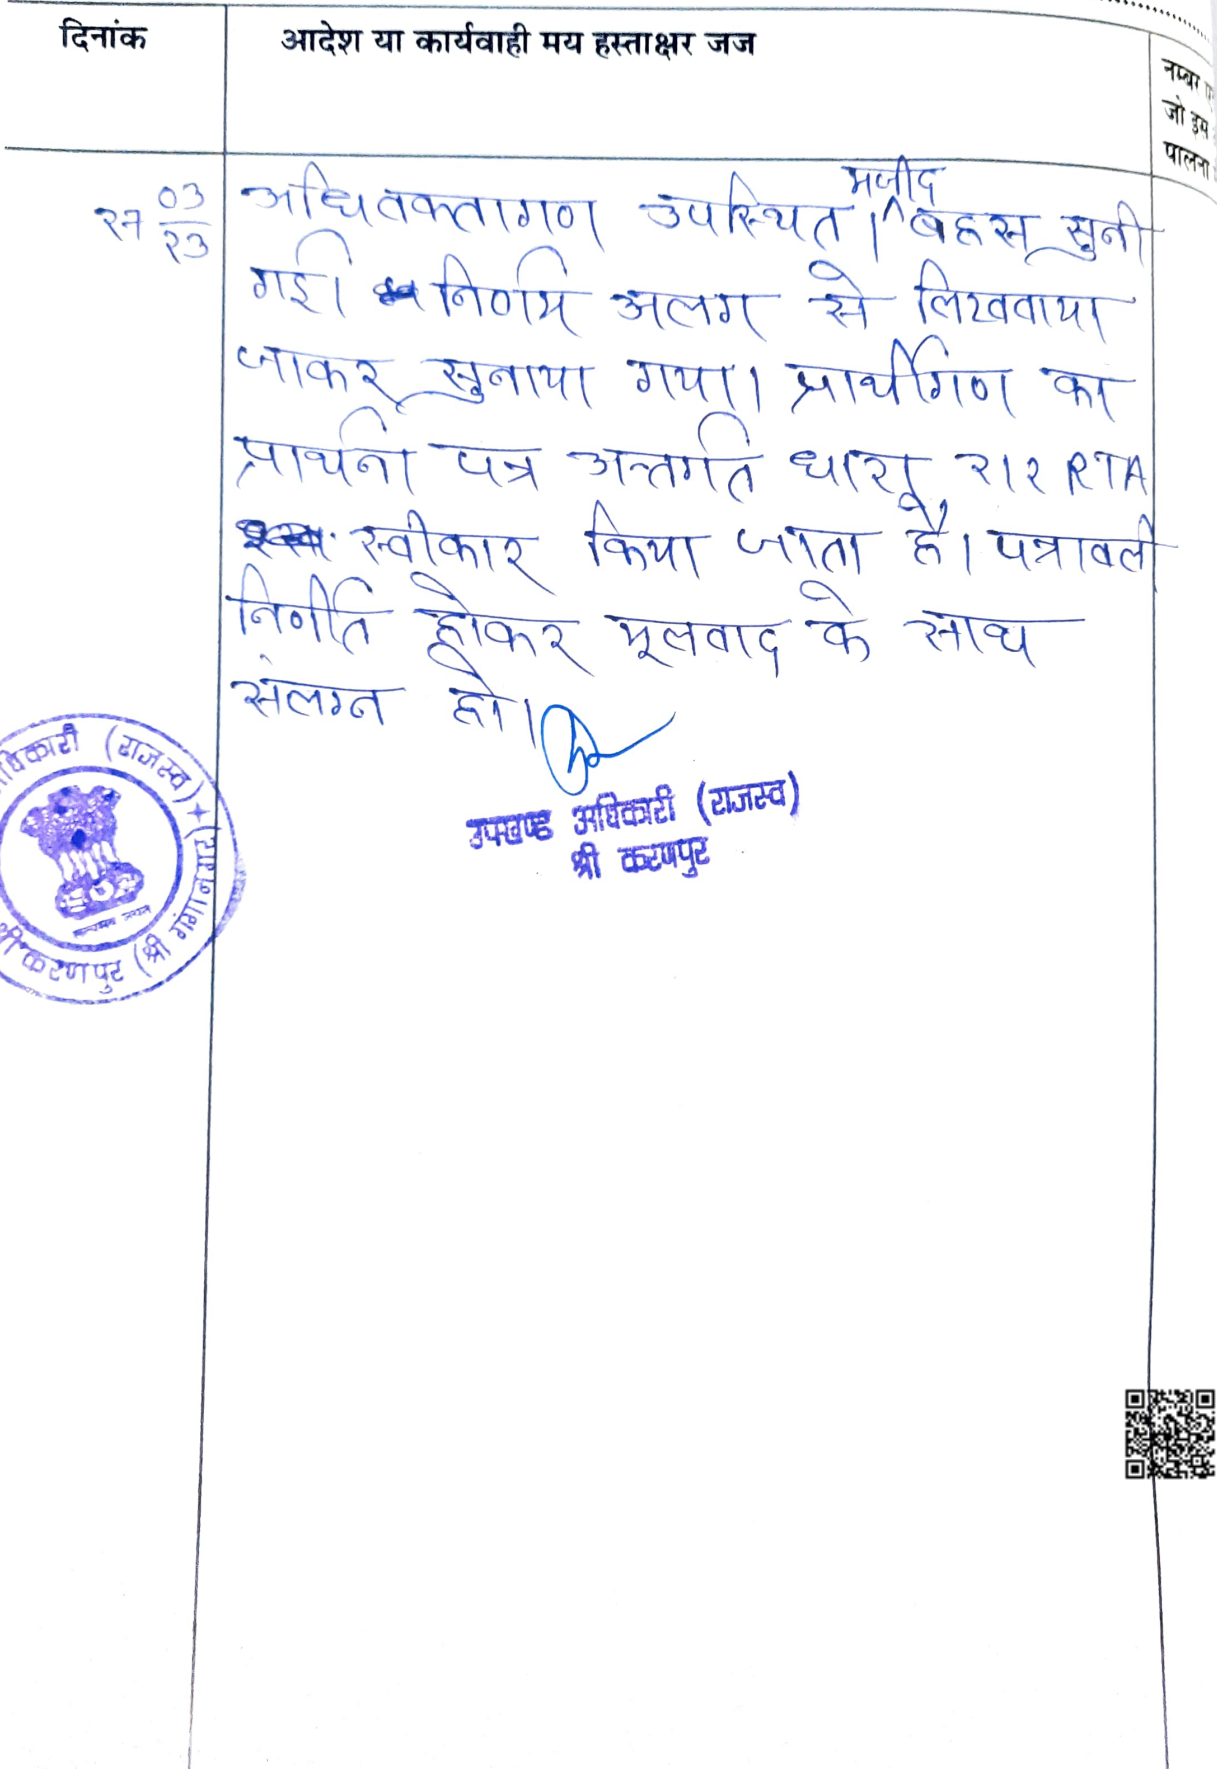 दिनांक
आदेश या कार्यवाही मय हस्ताक्षर जज
नम्बर
जो इस
पालना
२७ 03/२३
अधिवक्तागण उपस्थित। मजीद बहस सुनी
गई। निर्णय अलग से लिखवाया
जाकर सुनाया गया। प्रार्थीगण का
प्रार्थना पत्र अन्तर्गत धारा २१२ RTA
स्वीकार किया जाता है। पत्रावली
निर्णीत होकर मूलवाद के साथ
संलग्न हो।
उपखण्ड अधिकारी (राजस्व)
श्री करणपुर
धिकारी (राजस्व) + श्री करणपुर (श्री गंगानगर)